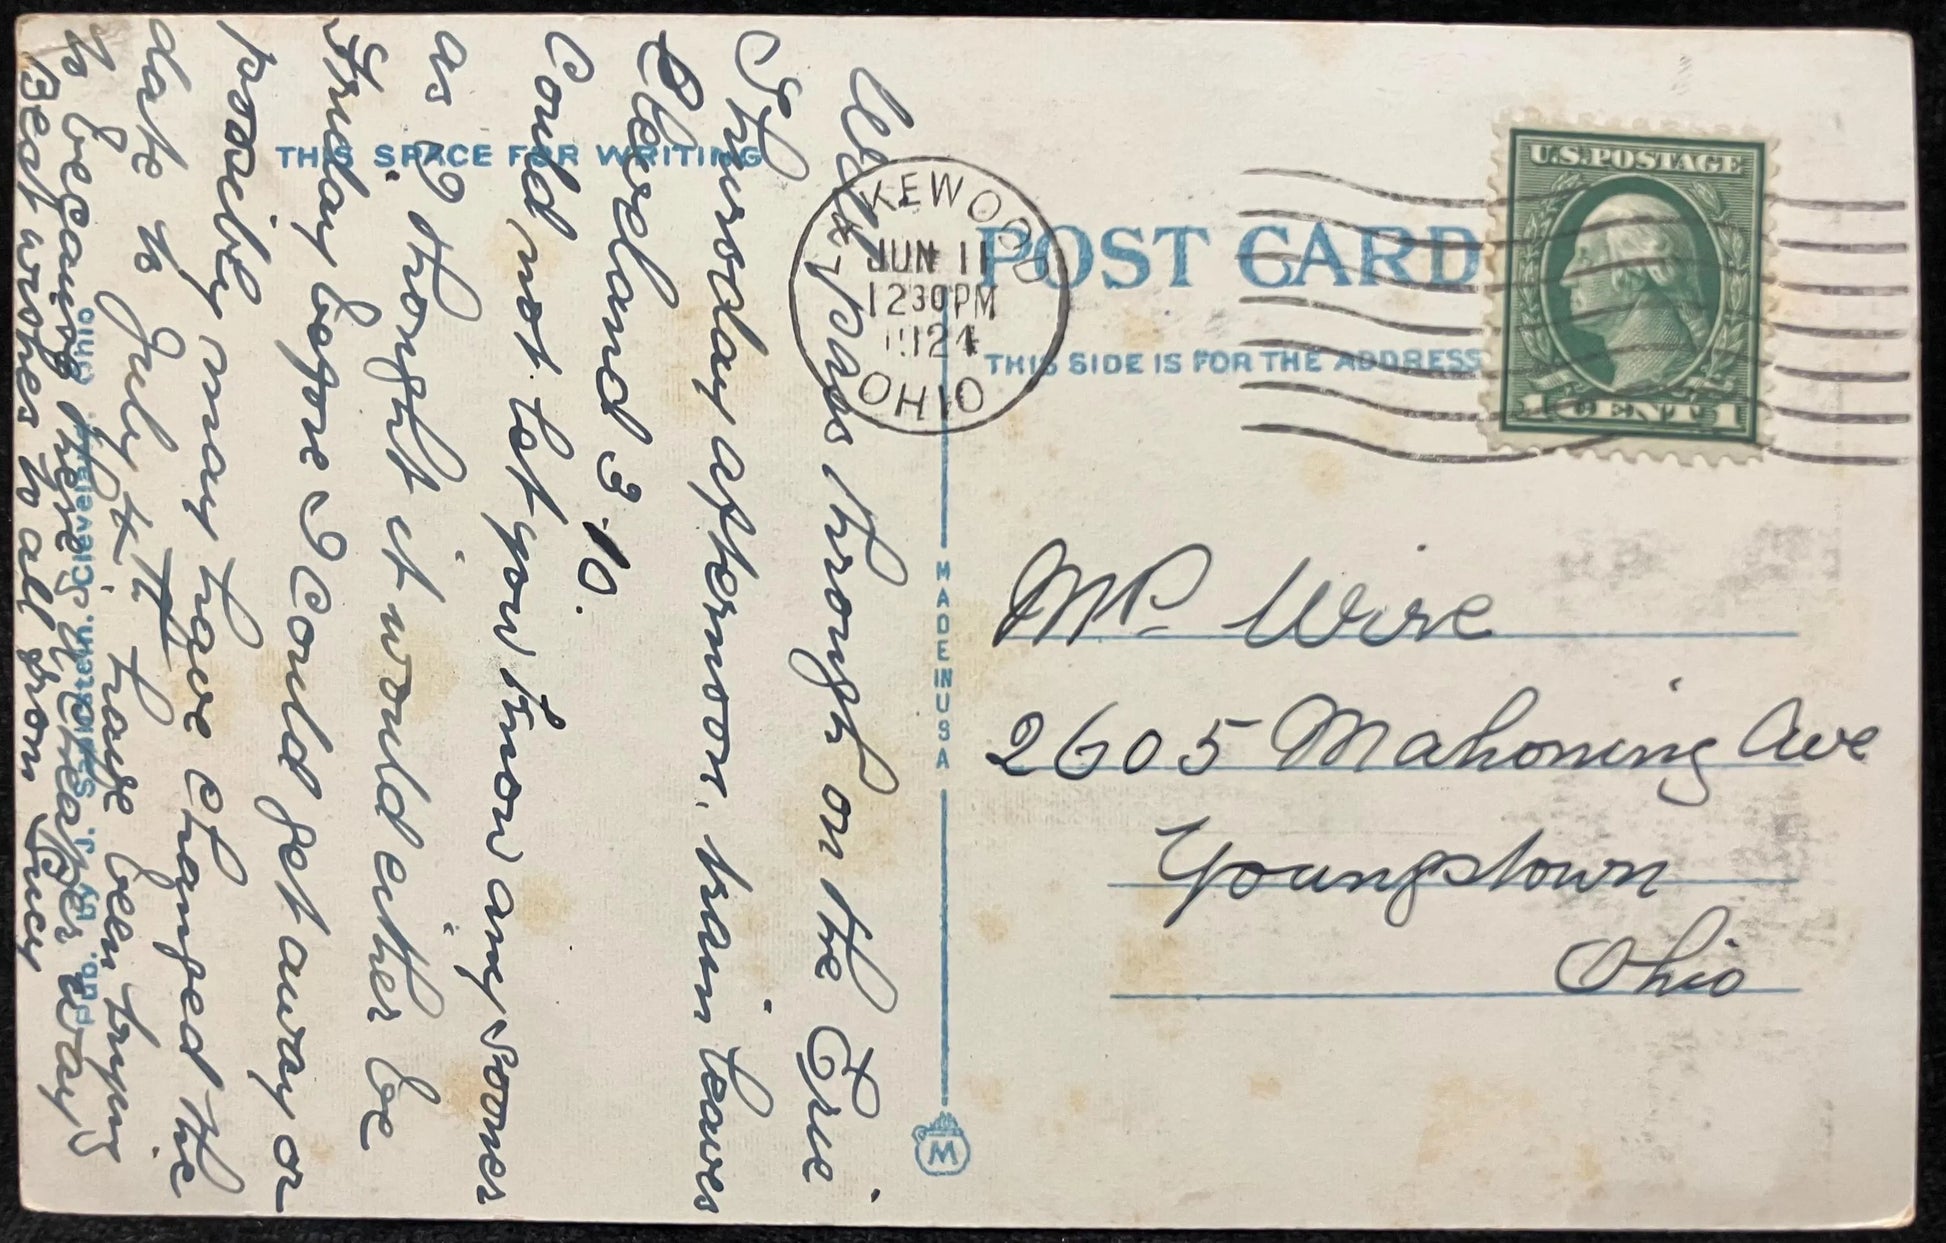 Will pass through on the Erie
Thursday afternoon, train leaves
Cleveland 3.10.
Could not let you know any sooner
as I thought it would either be
Friday before I could get away or
possibly may have changed the
date to July 4th have been trying
to because there is a cheaper way
Best wishes to all from Lucy
THIS SPACE FOR WRITING
Pub. by J. Cleveland, Ohio
LAKEWOOD
JUN 11
1230PM
1924
OHIO
POST CARD
THIS SIDE IS FOR THE ADDRESS
U.S.POSTAGE
1 CENT 1
MADE IN USA
M
Mr. Wire
2605 Mahoning Ave
Youngstown
Ohio